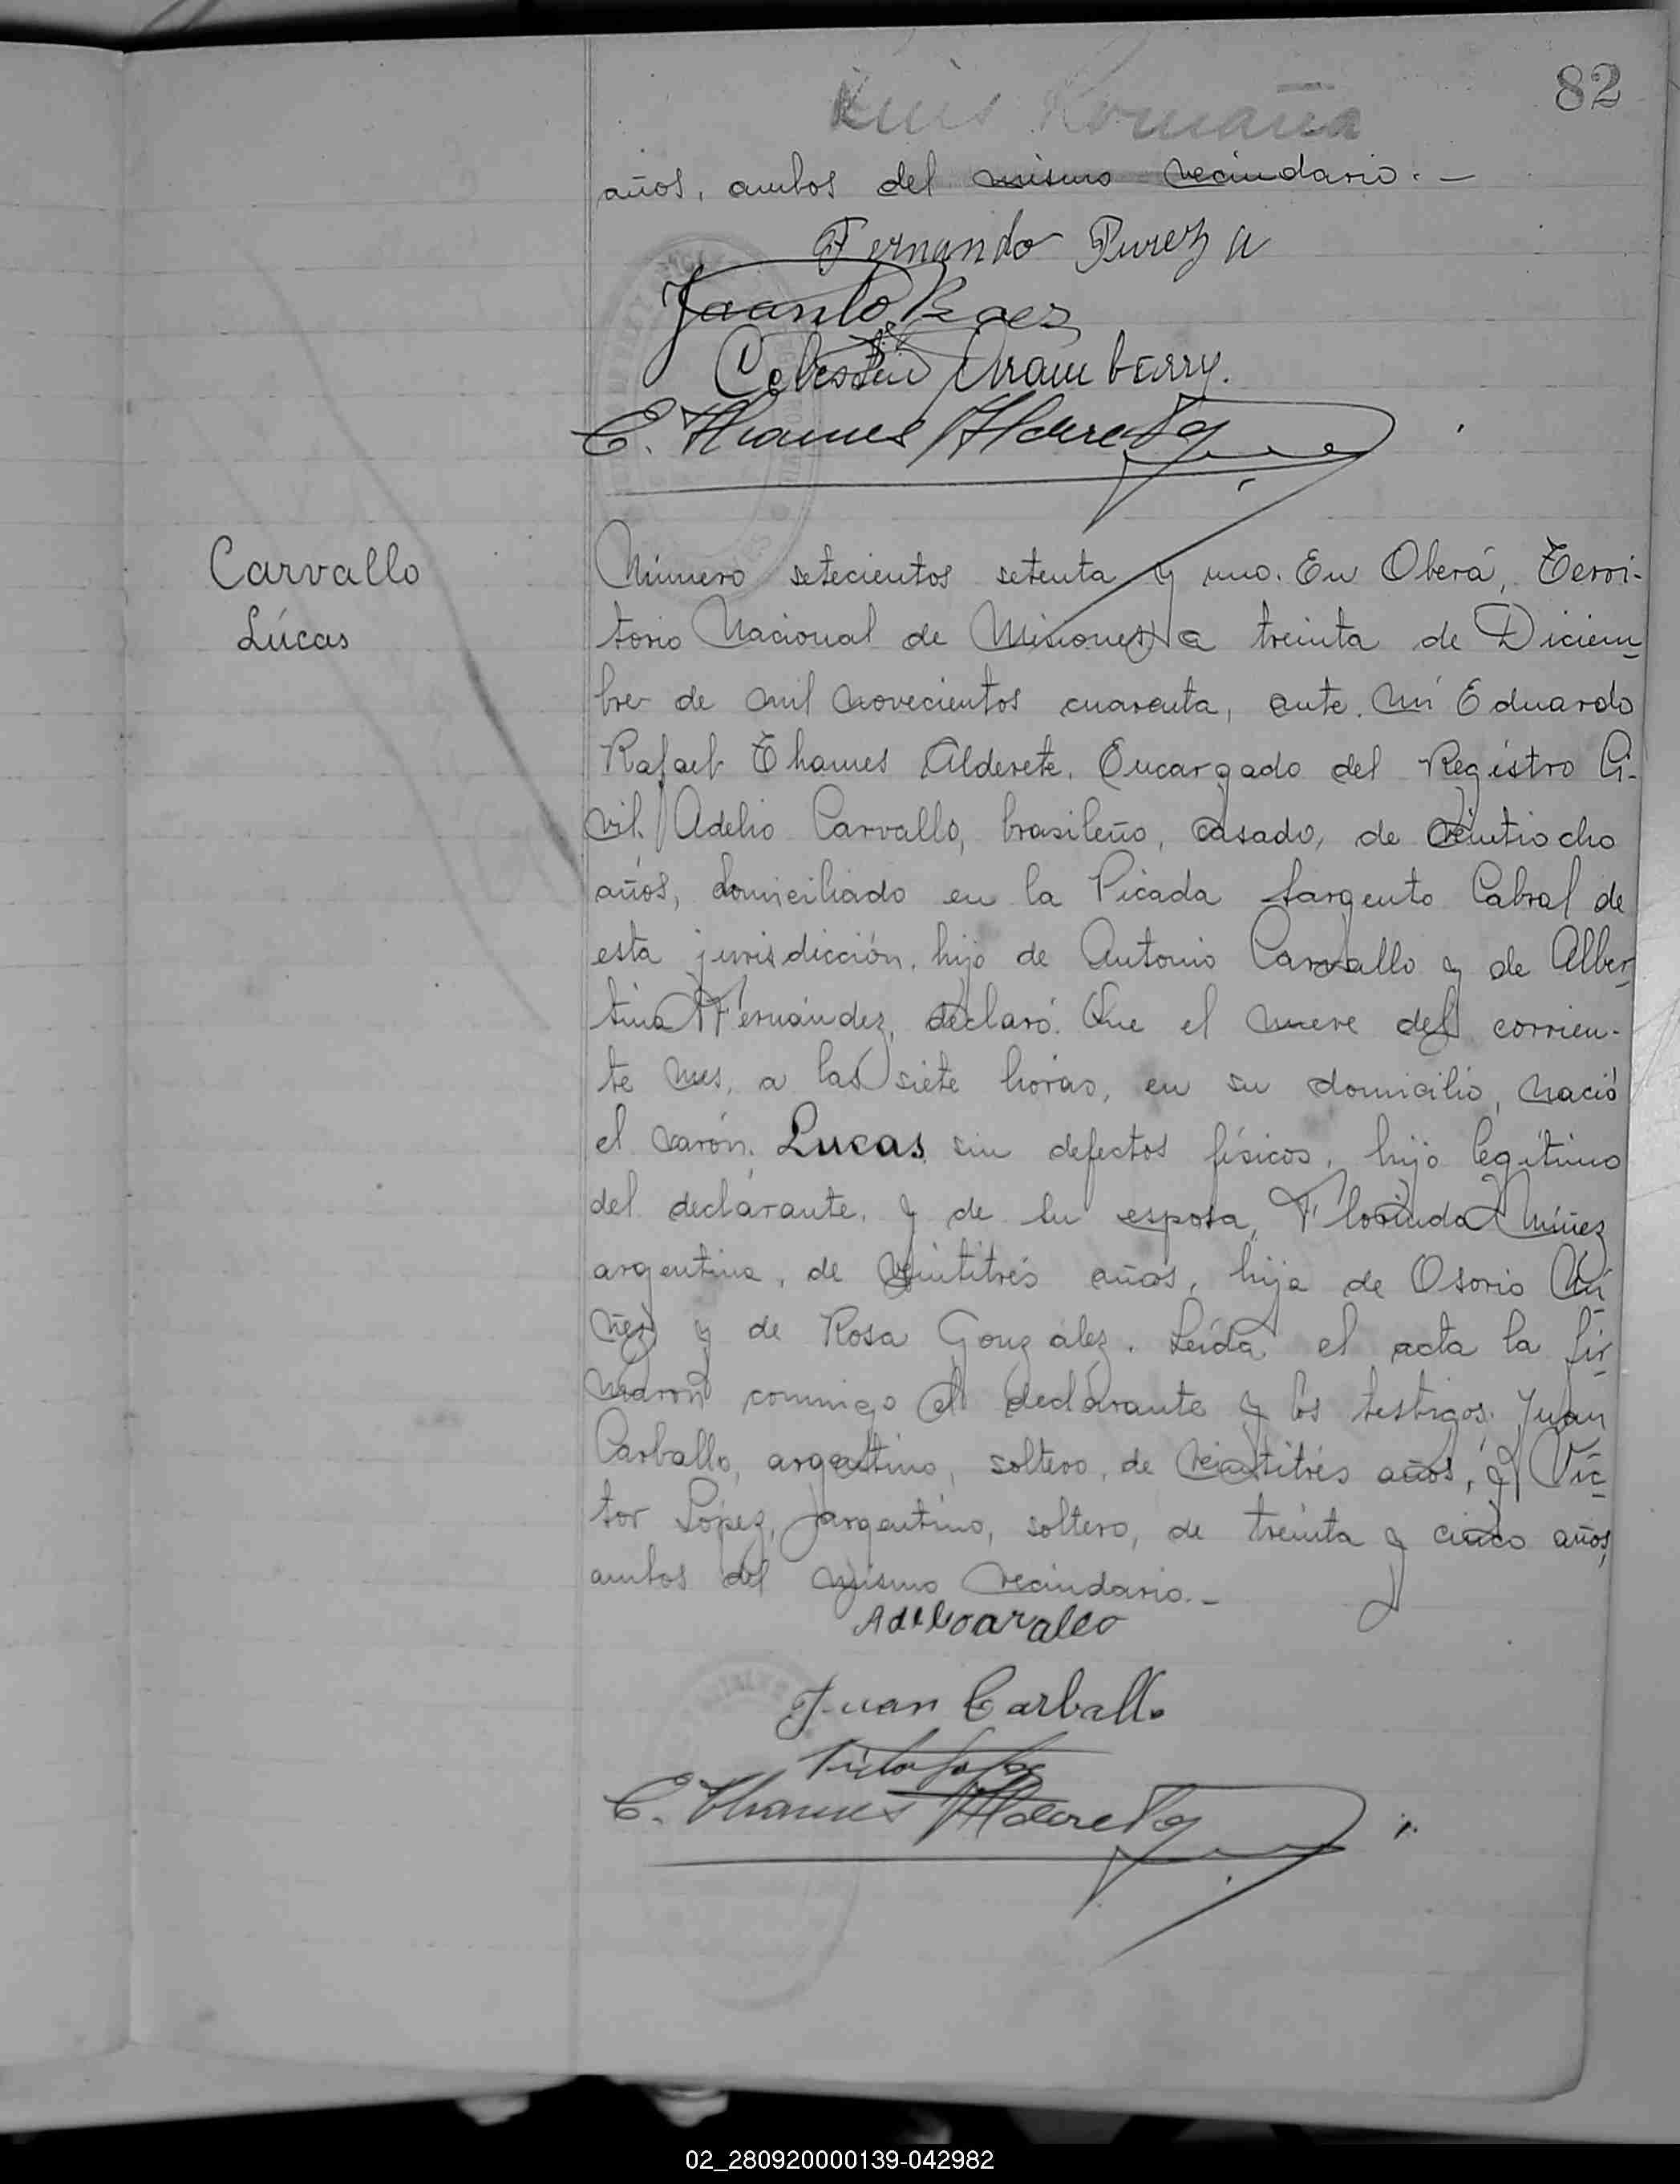 82
Luis Romaña
años, ambos del mismo vecindario. —
Fernando Pureza
Jacinto Baez
Celestin Aramberry.
E. Thames Alderete
Carvallo
Lúcas
Número setecientos setenta y uno. En Oberá, Terri-
torio Nacional de Misiones, a treinta de Diciem-
bre de mil novecientos cuarenta, ante mí Eduardo
Rafael Thames Alderete, Encargado del Registro Ci-
vil, Adelio Carvallo, brasileño, casado, de veintiocho
años, domiciliado en la Picada Sargento Cabral de
esta jurisdicción, hijo de Antonio Carvallo y de Alber-
tina Fernández, declaró: Que el nueve del corrien-
te mes, a las siete horas, en su domicilio, nació
el varón, Lucas, sin defectos físicos, hijo legítimo
del declarante, y de su esposa, Florinda Núñez
argentina, de veintitrés años, hija de Osorio Nú-
ñez y de Rosa González. Leída el acta la fir-
maron conmigo el declarante y los testigos: Juan
Carballo, argentino, soltero, de veintitrés años, y Víc-
tor López, argentino, soltero, de treinta y cinco años,
ambos del mismo vecindario. —
Juan Carballo
E. Thames Alderete
02_280920000139-042982